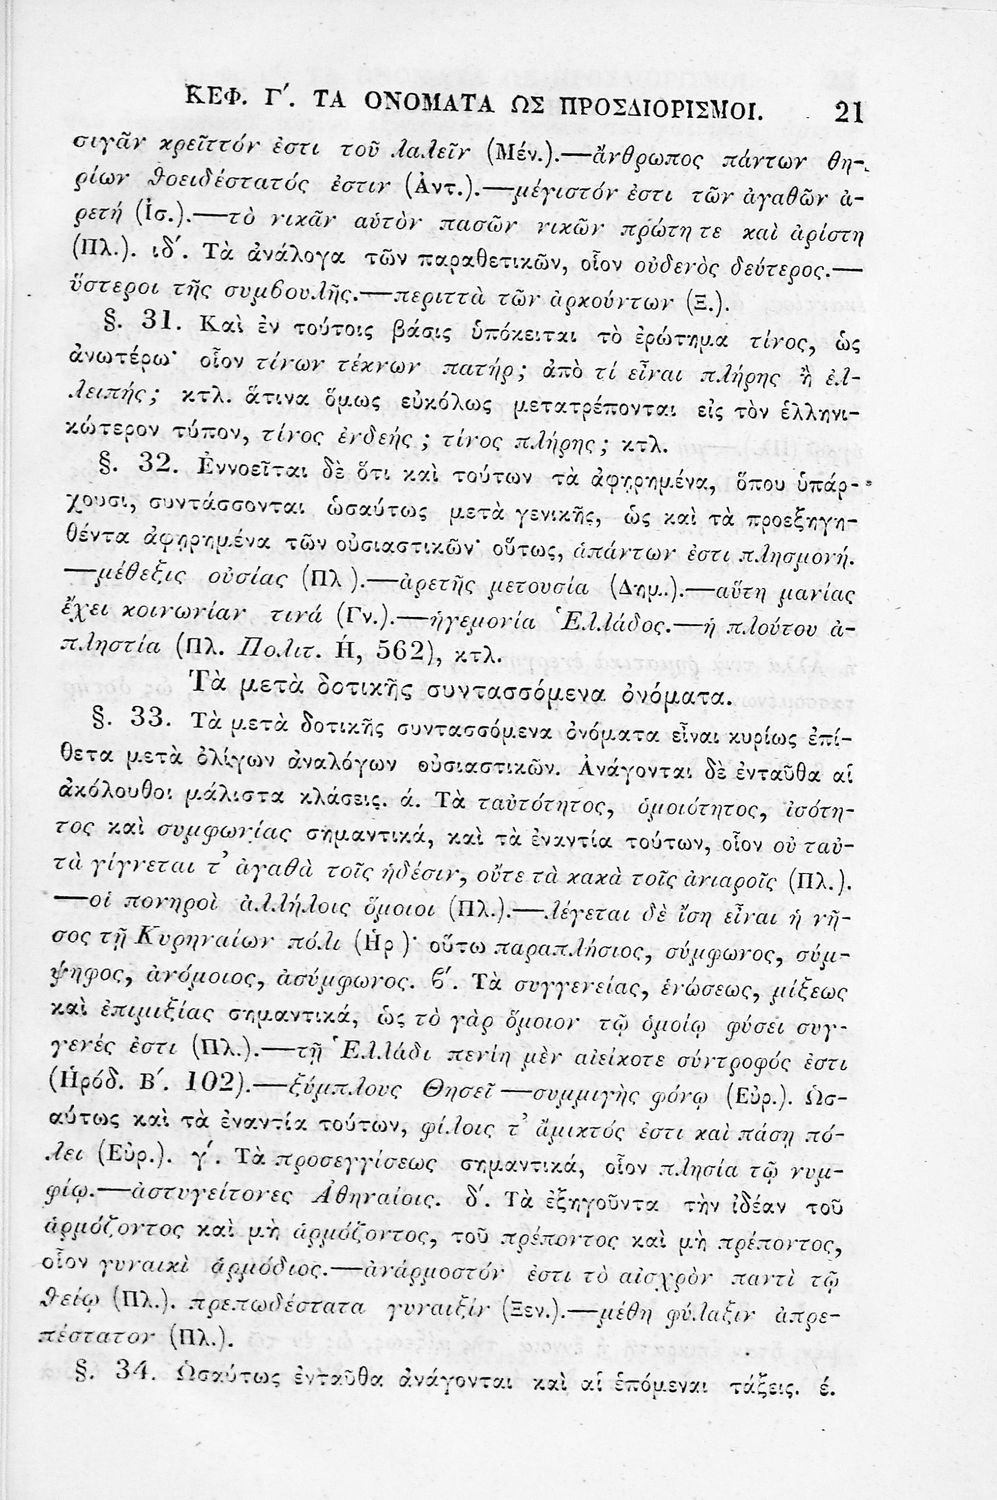 ΚΕΦ. Γʹ. ΤΑ ΟΝΟΜΑΤΑ ΩΣ ΠΡΟΣΔΙΟΡΙΣΜΟΙ. 21
σιγᾶν κρεῖττόν ἐστι τοῦ λαλεῖν (Μέν.).—ἄνθρωπος πάντων θη-
ρίων θοειδέστατός ἐστιν (Ἀντ.).—μέγιστόν ἐστι τῶν ἀγαθῶν ἀ-
ρετή (Ἰσ.).—τὸ νικᾶν αὑτὸν πασῶν νικῶν πρώτη τε καὶ ἀρίστη
(Πλ.). ιδʹ. Τὰ ἀνάλογα τῶν παραθετικῶν, οἷον οὐδενὸς δεύτερος.—
ὕστεροι τῆς συμβουλῆς.—περιττὰ τῶν ἀρκούντων (Ξ.).
§. 31. Καὶ ἐν τούτοις βάσις ὑπόκειται τὸ ἐρώτημα τίνος, ὡς
ἀνωτέρω· οἷον τίνων τέκνων πατήρ; ἀπὸ τί εἶναι πλήρης ἢ ἐλ-
λειπής; κτλ. ἅτινα ὅμως εὐκόλως μετατρέπονται εἰς τὸν ἑλληνι-
κώτερον τύπον, τίνος ἐνδεής; τίνος πλήρης; κτλ.
§. 32. Ἐννοεῖται δὲ ὅτι καὶ τούτων τὰ ἀφῃρημένα, ὅπου ὑπάρ-
χουσι, συντάσσονται ὡσαύτως μετὰ γενικῆς, ὡς καὶ τὰ προεξηγη-
θέντα ἀφῃρημένα τῶν οὐσιαστικῶν· οὕτως, ἁπάντων ἐστι πλησμονή.
—μέθεξις οὐσίας (Πλ).—ἀρετῆς μετουσία (Δημ.).—αὕτη μανίας
ἔχει κοινωνίαν τινά (Γν.).—ἡγεμονία Ἑλλάδος.—ἡ πλούτου ἀ-
πληστία (Πλ. Πολιτ. Ἠ, 562), κτλ.
Τὰ μετὰ δοτικῆς συντασσόμενα ὀνόματα.
§. 33. Τὰ μετὰ δοτικῆς συντασσόμενα ὀνόματα εἶναι κυρίως ἐπί-
θετα μετὰ ὀλίγων ἀναλόγων οὐσιαστικῶν. Ἀνάγονται δὲ ἐνταῦθα αἱ
ἀκόλουθοι μάλιστα κλάσεις. ά. Τὰ ταὐτότητος, ὁμοιότητος, ἰσότη-
τος καὶ συμφωνίας σημαντικά, καὶ τὰ ἐναντία τούτων, οἷον οὐ ταὐ-
τὰ γίγνεται τ᾽ ἀγαθὰ τοῖς ἡδέσιν, οὔτε τὰ κακὰ τοῖς ἀνιαροῖς (Πλ.).
—οἱ πονηροὶ ἀλλήλοις ὅμοιοι (Πλ.).—λέγεται δὲ ἴση εἶναι ἡ νῆ-
σος τῇ Κυρηναίων πόλι (Ἡρ)· οὕτω παραπλήσιος, σύμφωνος, σύμ-
ψηφος, ἀνόμοιος, ἀσύμφωνος. ϐʹ. Τὰ συγγενείας, ἑνώσεως, μίξεως
καὶ ἐπιμιξίας σημαντικά, ὡς τὸ γὰρ ὅμοιον τῷ ὁμοίῳ φύσει συγ-
γενές ἐστι (Πλ.).—τῇ Ἑλλάδι πενίη μὲν αἰείκοτε σύντροφός ἐστι
(Ἡρόδ. Βʹ. 102).—ξύμπλους Θησεῖ—συμμιγὴς φόνῳ (Εὐρ.). Ὡσ-
αύτως καὶ τὰ ἐναντία τούτων, φίλοις τ᾽ ἄμικτός ἐστι καὶ πάσῃ πό-
λει (Εὐρ.). γʹ. Τὰ προσεγγίσεως σημαντικά, οἷον πλησία τῷ νυμ-
φίῳ.—ἀστυγείτονες Ἀθηναίοις. δʹ. Τὰ ἐξηγοῦντα τὴν ἰδέαν τοῦ
ἁρμόζοντος καὶ μὴ ἁρμόζοντος, τοῦ πρέποντος καὶ μὴ πρέποντος,
οἷον γυναικὶ ἁρμόδιος.—ἀνάρμοστόν ἐστι τὸ αἰσχρὸν παντὶ τῷ
θείῳ (Πλ.). πρεπωδέστατα γυναιξίν (Ξεν.).—μέθη φύλαξιν ἀπρε-
πέστατον (Πλ.).
§. 34. Ὡσαύτως ἐνταῦθα ἀνάγονται καὶ αἱ ἑπόμεναι τάξεις. έ.